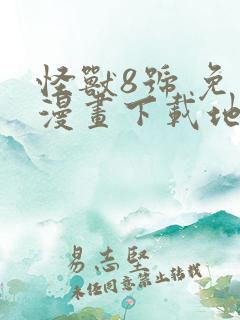 怪獸8號 免
漫畫下載地
易志堅
未经同意禁止转载